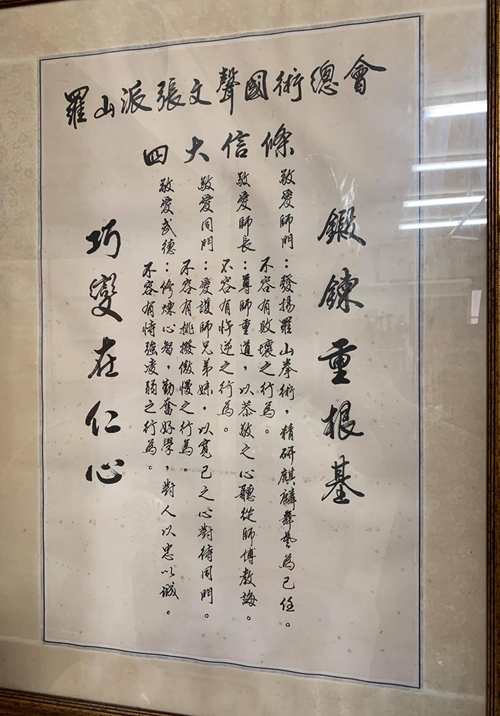 羅山派張文聲國術總會
四大信條
鍛鍊重根基
敬愛師門：發揚羅山拳術，精研麒麟舞藝為己任。
不容有敗壞之行為。
敬愛師長：尊師重道，以恭敬之心聽從師傅教誨。
不容有忤逆之行為。
敬愛同門：愛護師兄弟妹，以寬己之心對待同門。
不容有挑撥傲慢之行為。
敬愛武德：修煉心智，勤奮好學，對人以忠以誠。
不容有恃強凌弱之行為。
巧變在仁心